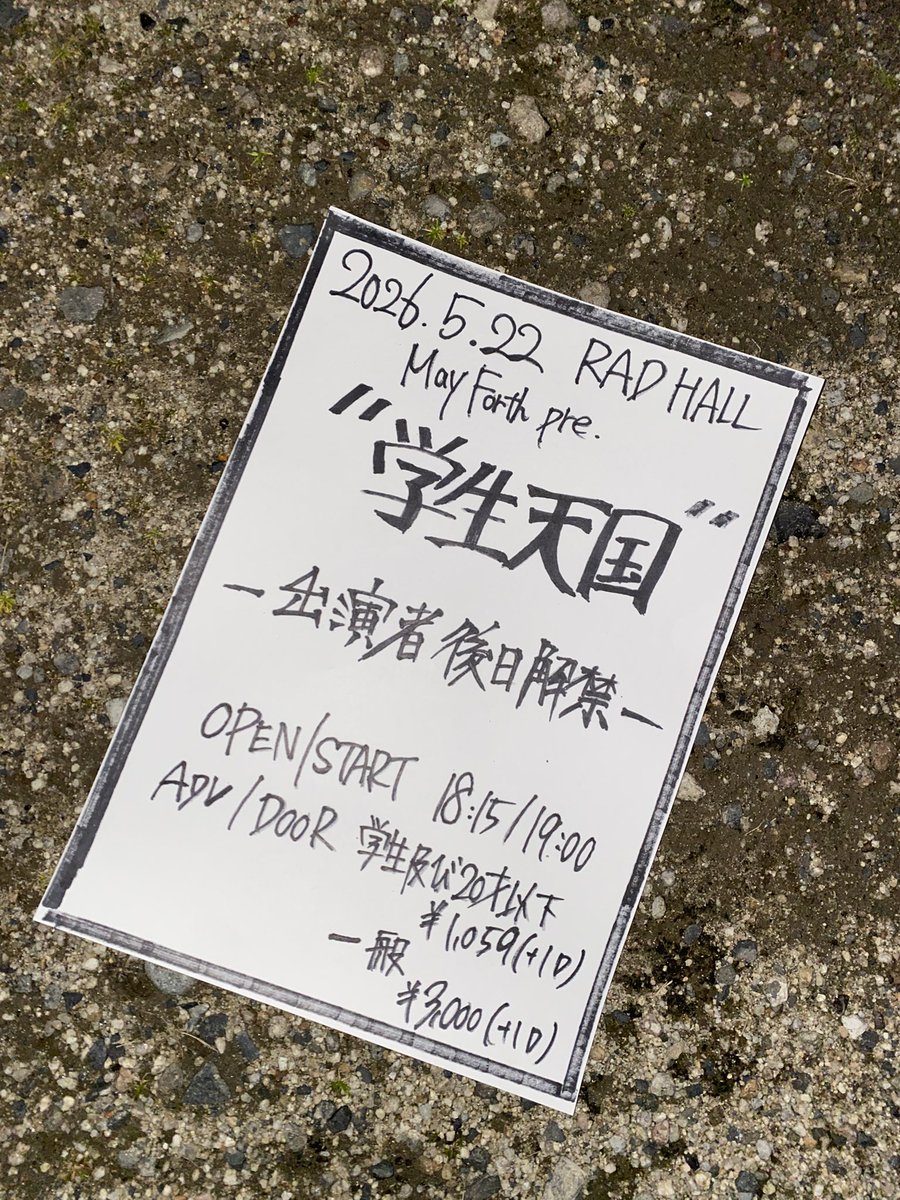 2026.5.22 RAD HALL
May Forth pre.
"学生天国"
-出演者後日解禁-
OPEN/START 18:15/19:00
ADV/DOOR 学生及び20才以下
¥1,059(+1D)
一般
¥3,000(+1D)